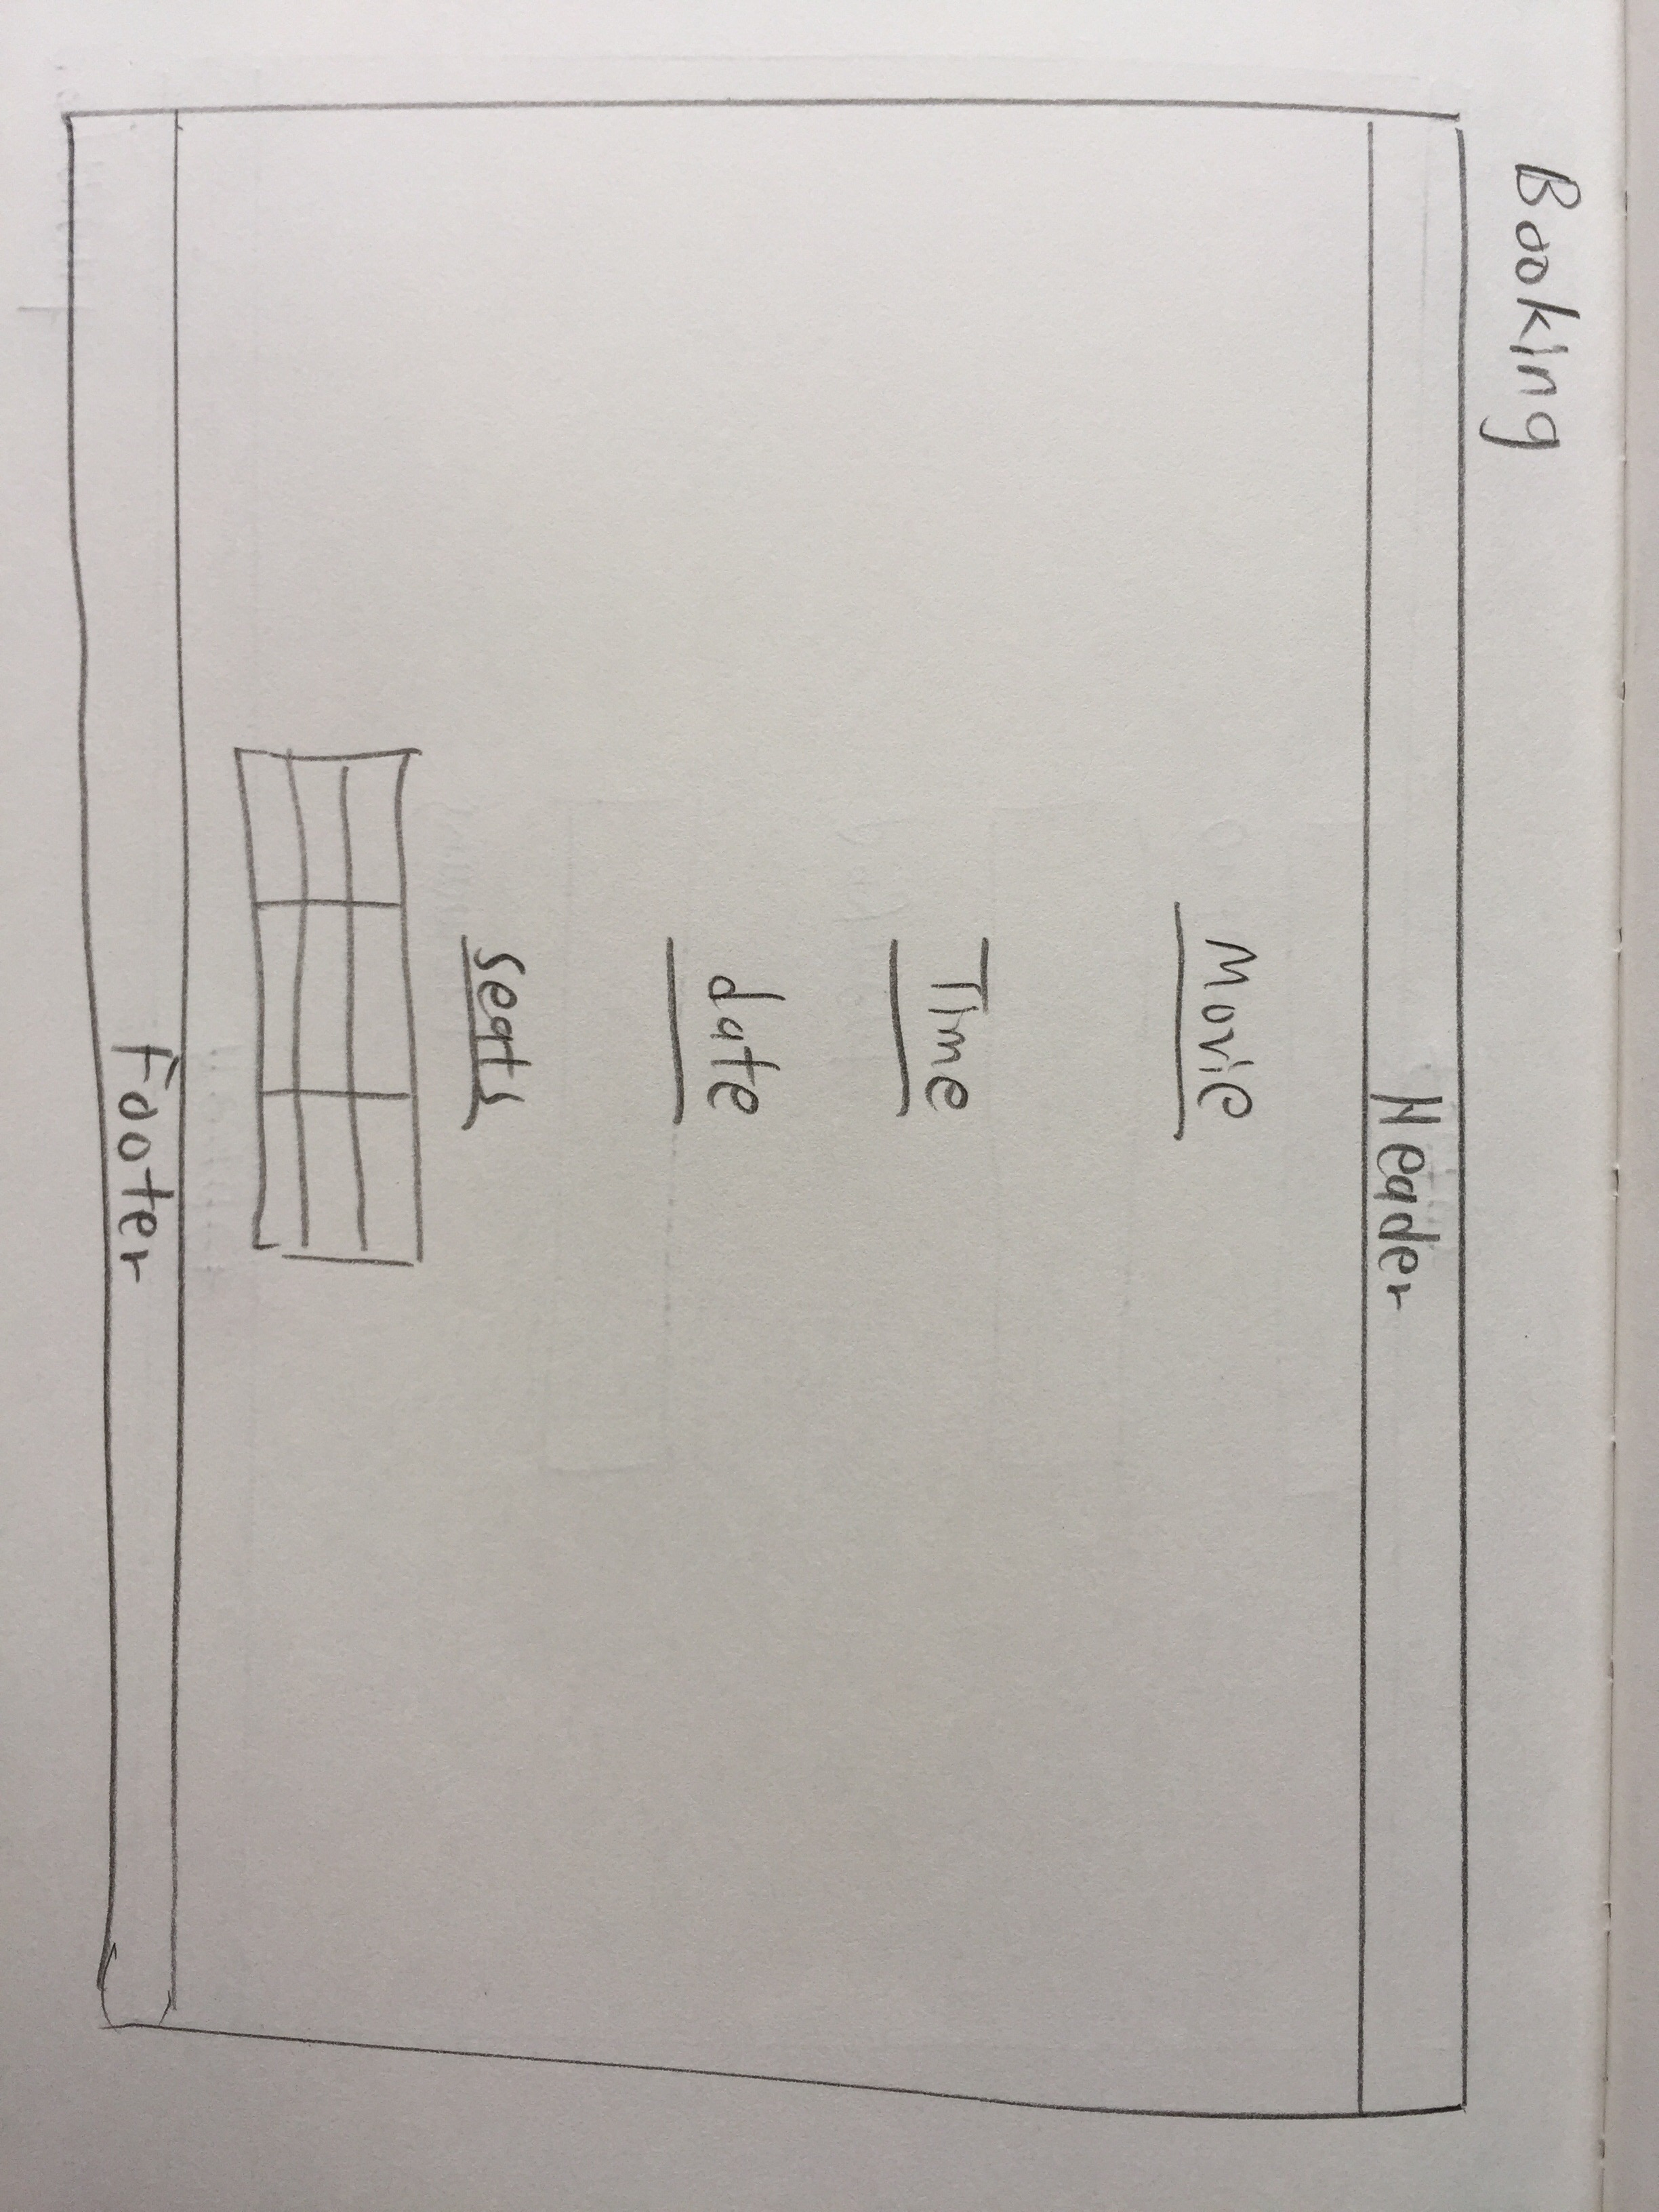 Booking
Header
Movie
Time
date
seats
Footer